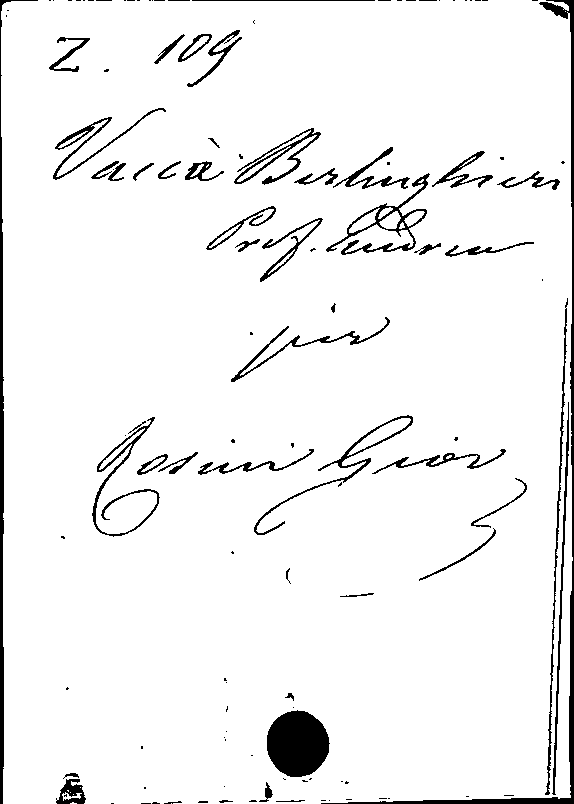 Z. 109
Vaccà Berlinghieri
Prof. Andrea
per
Rosini Giov